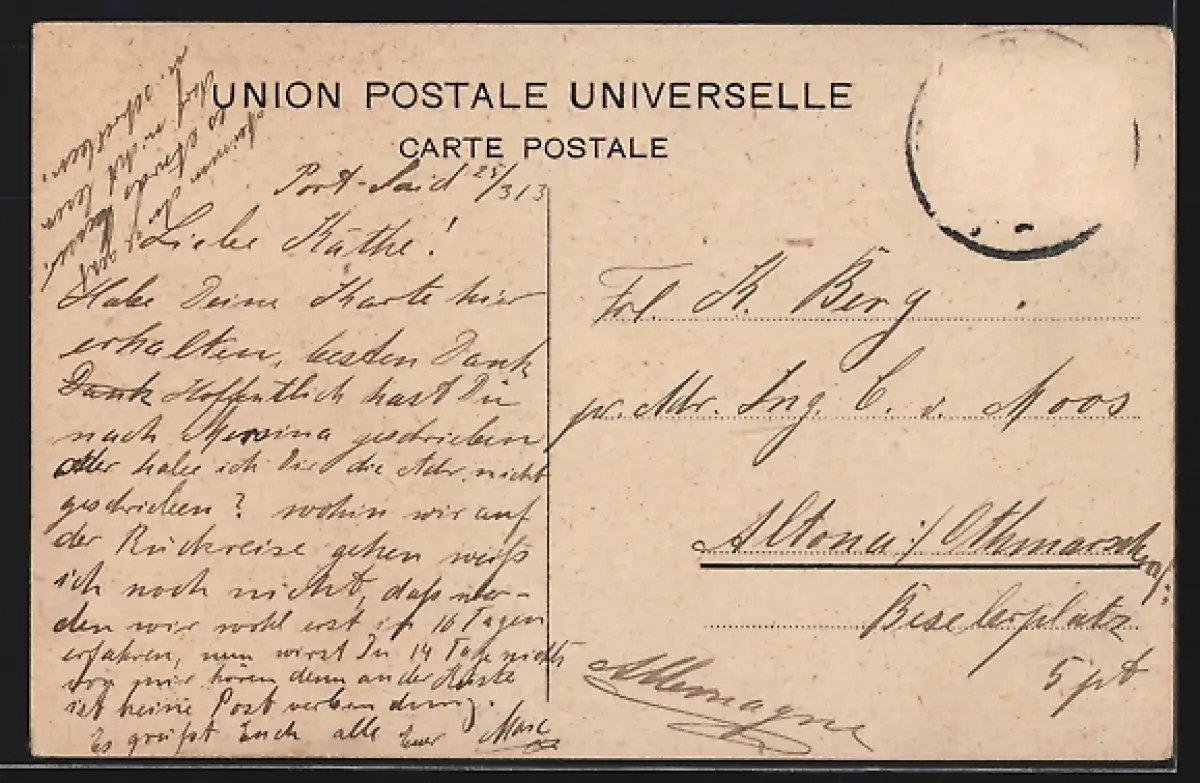 UNION POSTALE UNIVERSELLE
CARTE POSTALE
Port-Said 25/3 13
Liebe Käthe!
Habe Deine Karte hier
erhalten, besten Dank
Dank Hoffentlich hast Du
nach Mersina geschrieben
oder habe ich Dir die Adr. nicht
geschrieben? wohin wir auf
der Rückreise gehen weiß
ich noch nicht, daß wer-
den wir wohl erst in 16 Tagen
erfahren, nun wirst Du 14 Tage nichts
von mir hören denn an der Küste
ist keine Post verbindung.
Es grüßt Euch alle Euer
Frl. K. Berg
pr. Adr. Ing. C. v. Moos
Altona:/Othmarschen:
Beselerplatz
5 pt
Allemagne